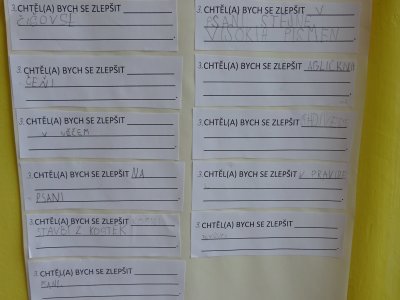 3. CHTĚL(A) BYCH SE ZLEPŠIT
ČIČOVSL
3. CHTĚL(A) BYCH SE ZLEPŠIT
ČEŠI
3. CHTĚL(A) BYCH SE ZLEPŠIT
V VĚČEM
3. CHTĚL(A) BYCH SE ZLEPŠIT NA
PSANI
3. CHTĚL(A) BYCH SE ZLEPŠIT
STAVBĚ Z KOSTEK
3. CHTĚL(A) BYCH SE ZLEPŠIT
3. CHTĚL(A) BYCH SE ZLEPŠIT V
PSANI STEJNE
VISOKIH PISMEN
3. CHTĚL(A) BYCH SE ZLEPŠIT
3. CHTĚL(A) BYCH SE ZLEPŠIT
3. CHTĚL(A) BYCH SE ZLEPŠIT V PRAVIDE
3. CHTĚL(A) BYCH SE ZLEPŠIT